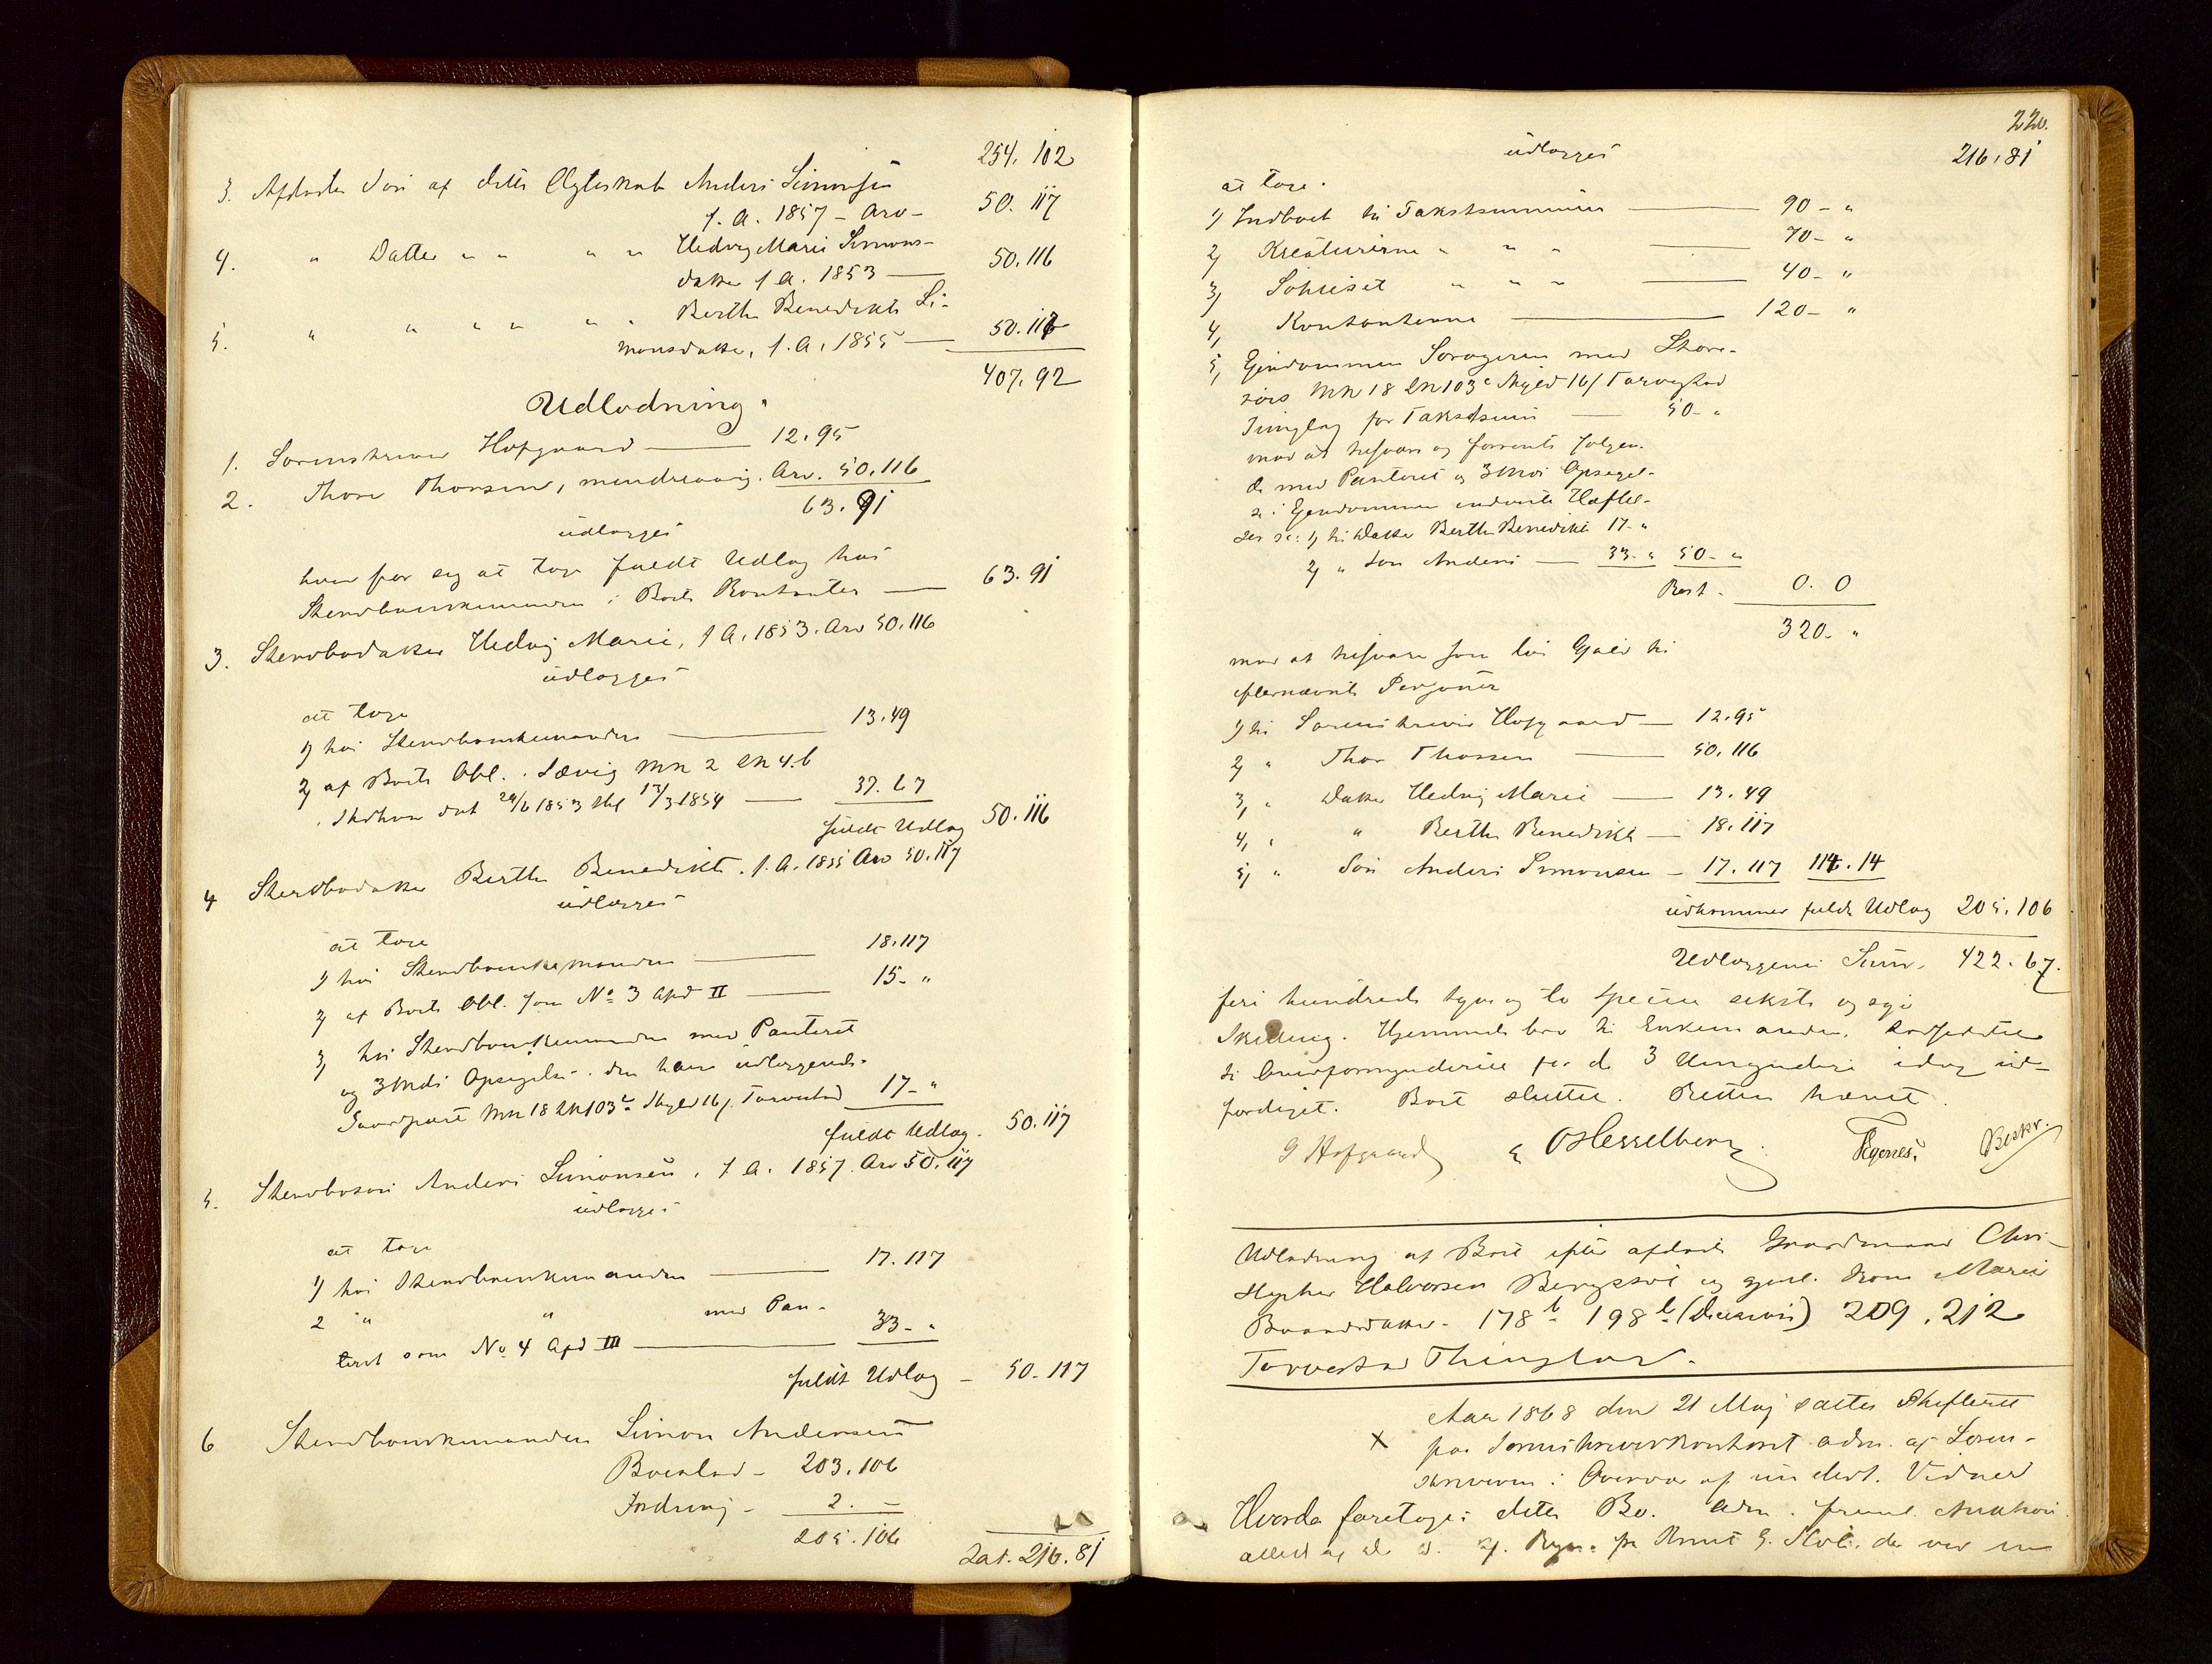 254. 102
3. Afdødes Søn af dette Ægteskab Anders Simonsen
f. A. 1857 – Arv – 50. 117
4. " Datter " " " " Hedvig Marie Simons-
datter f A. 1853 — 50. 116
5. " " " " " " Berthe Benedikte Si-
monsdatter, f. A. 1855 — 50. 117
407. 92
Udlodning.
1. Sorenskriver Hofgaard — 12. 95
2. Thore Thorsen, mindreaarig. Arv. 50. 116
63. 91
udlægges
hver for sig at tage fuldt Udlæg hos
Stervboenkemanden i Boets Kontanter — 63. 91
3. Stervbodatter Hedvig Marie, f A. 1853. Arv 50. 116
udlægges
at tage
1) hos Stervboenkemanden — 13. 49
2) af Boets Obl. i Sævig MN 2 LN 4.b
i Skaare dat 24/6 1853 thl 13/3 1854 — 37. 67
fuldt Udlæg 50. 116
4 Stervbodatter Berthe Benedikte. f. A. 1855 Arv 50. 117
udlægges
at tage
1) hos Stervboenkemanden — 18. 117
2) af Boets Obl. som No 3 Apd II — 15 – "
3) hos Stervboenkemanden med Panteret
og 3 Mdrs Opsigelse i den ham udlæggende
Gaardpart MN 18 LN 103c Skyld 16 f. Torvestad 17 – "
fuldt Udlæg. 50. 117
5. Stervbosøn Anders Simonsen, f A. 1857. Arv 50. 117
udlægges
at tage
1) hos Stervboenkemanden — 17. 117
2 " " med Pan-
teret som No 4 Apd III — 33 – "
fuldt Udlæg – 50. 117
6 Stervboenkemanden Simon Andersen
Boeslod – 203. 106
Fordring – 2. –
205. 106
Lat. 216. 81
220.
udlægges 216. 81
at tage.
1) Indboet til Takstsummen — 90 – "
2) Kreaturerne " " " — 70 – "
3) Søhuset " " " — 40 – "
4) Kontanterne — 120 – "
5) Ejendommen med Store-
MN 18 LN 103c Skyld 16 f Torvestad
Tinglag for Takstsum — 50 – "
mod at tilsvare og forrente følgen-
de med Panteret og 3 Mdrs Opsigel-
se i Ejendommen endvidere Hæftel-
ser sc: 1) til Datter Berthe Benedikte 17 – "
2) " Søn Anders — 33 – " 50 – "
Rest – 0. 0
320 – "
mod at tilsvare som løs Gjæld til
efternævnte Personer
1) til Sorenskriver Hofgaard — 12. 95
2) " Thor Thorsen — 50. 116
3) " Datter Hedvig Marie — 13. 49
4) " " Berthe Benedikte — 18. 117
5) " Søn Anders Simonsen – 17. 117 114. 14
udkommer fuldt Udlæg 205. 106
Udlæggenes Sum. 422. 67.
fire hundrede tyve og to Specier seksti og syv
Skilling. Hjemmelsbrev til Enkemanden,
til Overformynderiet for de 3 Umyndige idag ud-
færdiget. Boet sluttet. Retten hævet.
G Hofgaard O Hesselberg. Egenes. Beskr.
Udlodning af Boet efter afdøde Gaardmand Chri-
stopher Halvorsen Bergesvi og gjenl. Kone Marie
178b 198b 209, 212
Torvestad Thinglag.
Aar 1868 den 21 Maj sattes Skifteret
X paa Sorenskriverkontoret adm. af Soren-
skriveren i Overvær af undert. Vidner
Hvorda foretoges dette Bo. Adm. freml.
af. for Knut G.